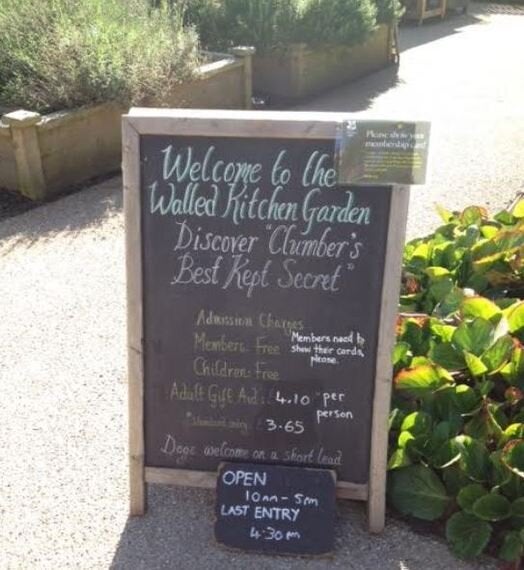 Please show your
membership card
Welcome to the
Walled Kitchen Garden
Discover "Clumber's
Best Kept Secret"
Admission Charges
Members: Free
Members need to
show their cards,
please.
Children: Free
Adult Gift Aid: £4.10 "per
person
*Standard entry: £3.65
Dogs welcome on a short lead
OPEN
10am - 5pm
LAST ENTRY
4.30pm